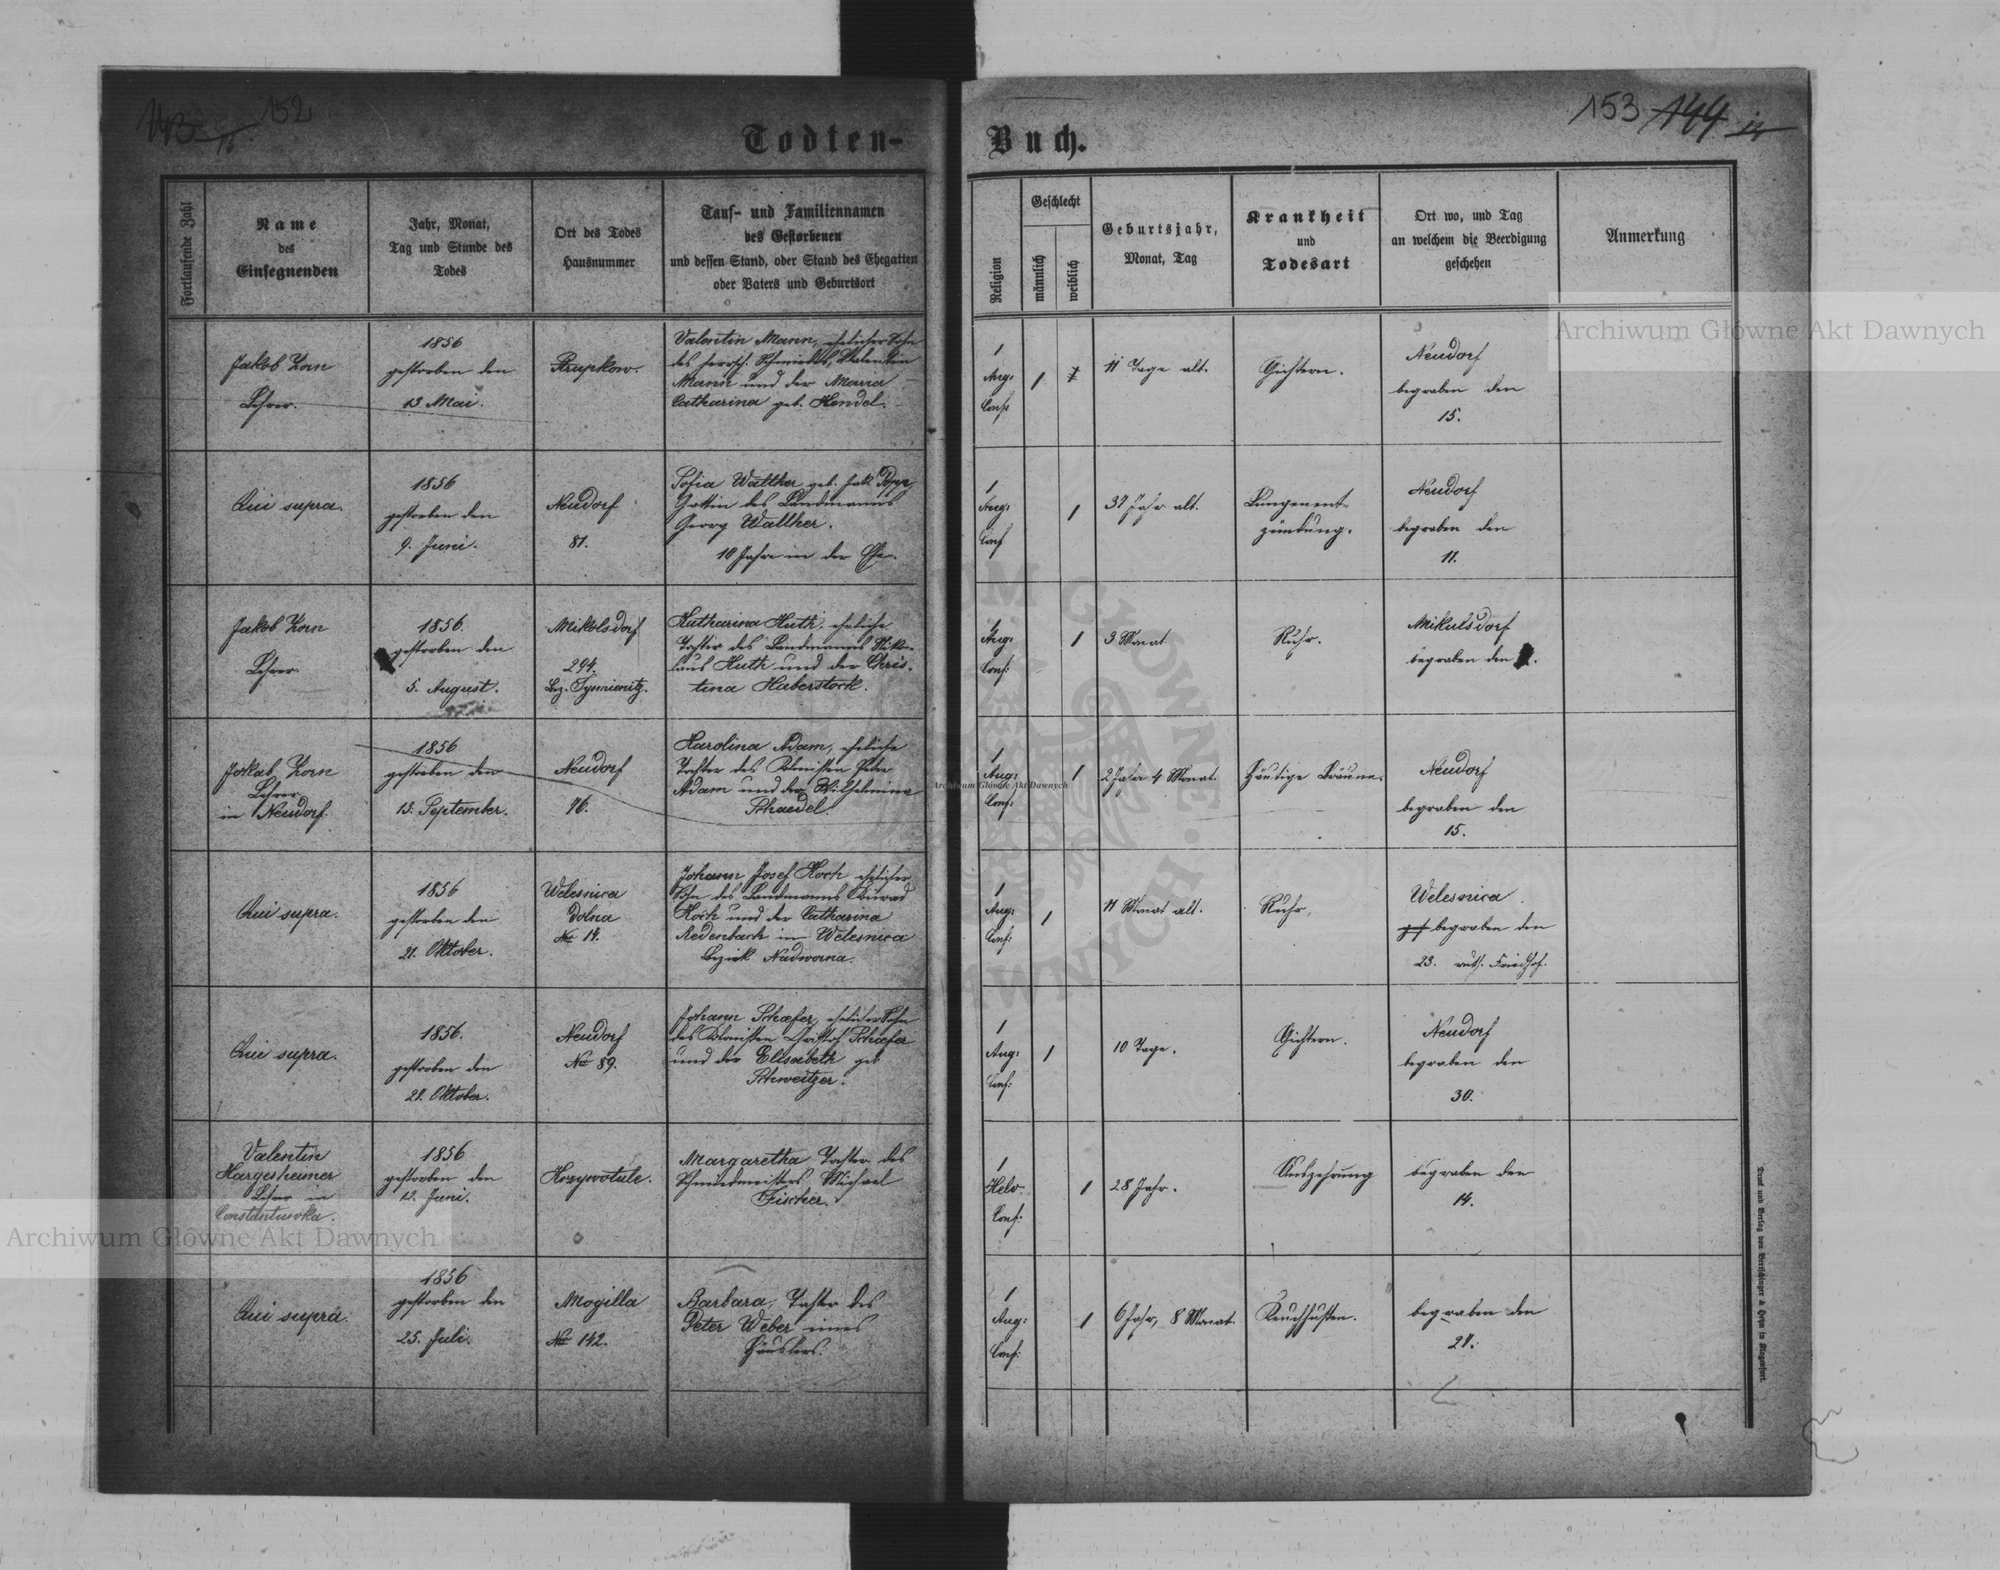 143
16
152
Todten-
Fortlaufende Zahl
Name
des
Einsegnenden
Jahr, Monat,
Tag und Stunde des
Todes
Ort des Todes
Hausnummer
Tauf- und Familiennamen
des Gestorbenen
und dessen Stand, oder Stand des Ehegatten
oder Vaters und Geburtsort
Jakob Zorn
Lehrer.
1856
gestorben den
13 Mai.
Strupkow.
Valentin Mann, ehelicher Sohn
des herrsch. Schmiedes, Valentin
Mann und der Maria
Catharina geb. Hendel.
Qui supra.
1856
gestorben den
9. Juni.
Neudorf
81.
Sofia Walther geb. Popp
Gattin des Landmanns
Georg Walther.
10 Jahre in der Ehe.
Jakob Zorn
Lehrer.
1856.
gestorben den
5. August.
Mikolsdorf
294.
Bez. Tysmienitz.
Katharina Huth, eheliche
Tochter des Landmanns Niko-
laus Huth und der Chris-
tina Haberstock.
Jakob Zorn
Lehrer
in Neudorf.
1856
gestorben den
13. September.
Neudorf
76.
Karolina Adam, eheliche
Tochter des Kolonisten Peter
Adam und der Wilhelmina
Schaedel.
Qui supra.
1856
gestorben den
21. Oktober.
Welesnica
Dolna
No 14.
Johann Josef Koch ehelicher
Sohn des Landmanns Konrad
Koch und der Catharina
Redenbach in Welesnica
Bezirk Nadworna.
Qui supra.
1856.
gestorben den
28. Oktober.
Neudorf
No 89.
Johann Schaefer, ehelicher Sohn
des Kolonisten Christof Schaefer
und der Elisabeth geb
Schweitzer.
Valentin
Hargesheimer
Lehrer in
Constantuwka.
1856
gestorben den
12. Juni.
Krzywotule.
Margaretha Tochter des
Schmiedmeisters Michael
Fischer.
Qui supra.
1856
gestorben den
25. Juli.
Mogilla
No 142.
Barbara, Tochter des
Peter Weber eines
Häuslers.
Buch.
153
144
Religion
Geschlecht
männlich
weiblich
Geburtsjahr,
Monat, Tag
Krankheit
und
Todesart
Ort wo, und Tag
an welchem die Beerdigung
geschehen
Anmerkung
1
Aug:
Conf:
1
11 Tage alt.
Gichtern.
Neudorf
begraben den
15.
1
Aug:
Conf
1
37 Jahr alt.
Lungenent-
zündung.
Neudorf
begraben den
11.
1
Aug:
Conf:
1
3 Monat
Ruhr.
Mikulsdorf
begraben den
1
Aug:
Conf:
1
2 Jahr 4 Monat.
Häutige Bräune.
Neudorf
begraben den
15.
1
Aug:
Conf:
1
11 Monat alt.
Ruhr.
Welesnica.
begraben den
23. ruth. Friedhof.
1
Aug:
Conf:
1
10 Tage.
Gichtern.
Neudorf
begraben den
30.
1
Helv.
Conf:
1
28 Jahr.
Auszehrung
begraben den
14.
1
Aug:
Conf:
1
6 Jahr, 8 Monat.
Keuchhusten.
begraben den
28.
Druck und Verlag von Bertschinger & Heyn in Klagenfurt.
Archiwum Główne Akt Dawnych
Archiwum Główne Akt Dawnych
Archiwum Główne Akt Dawnych